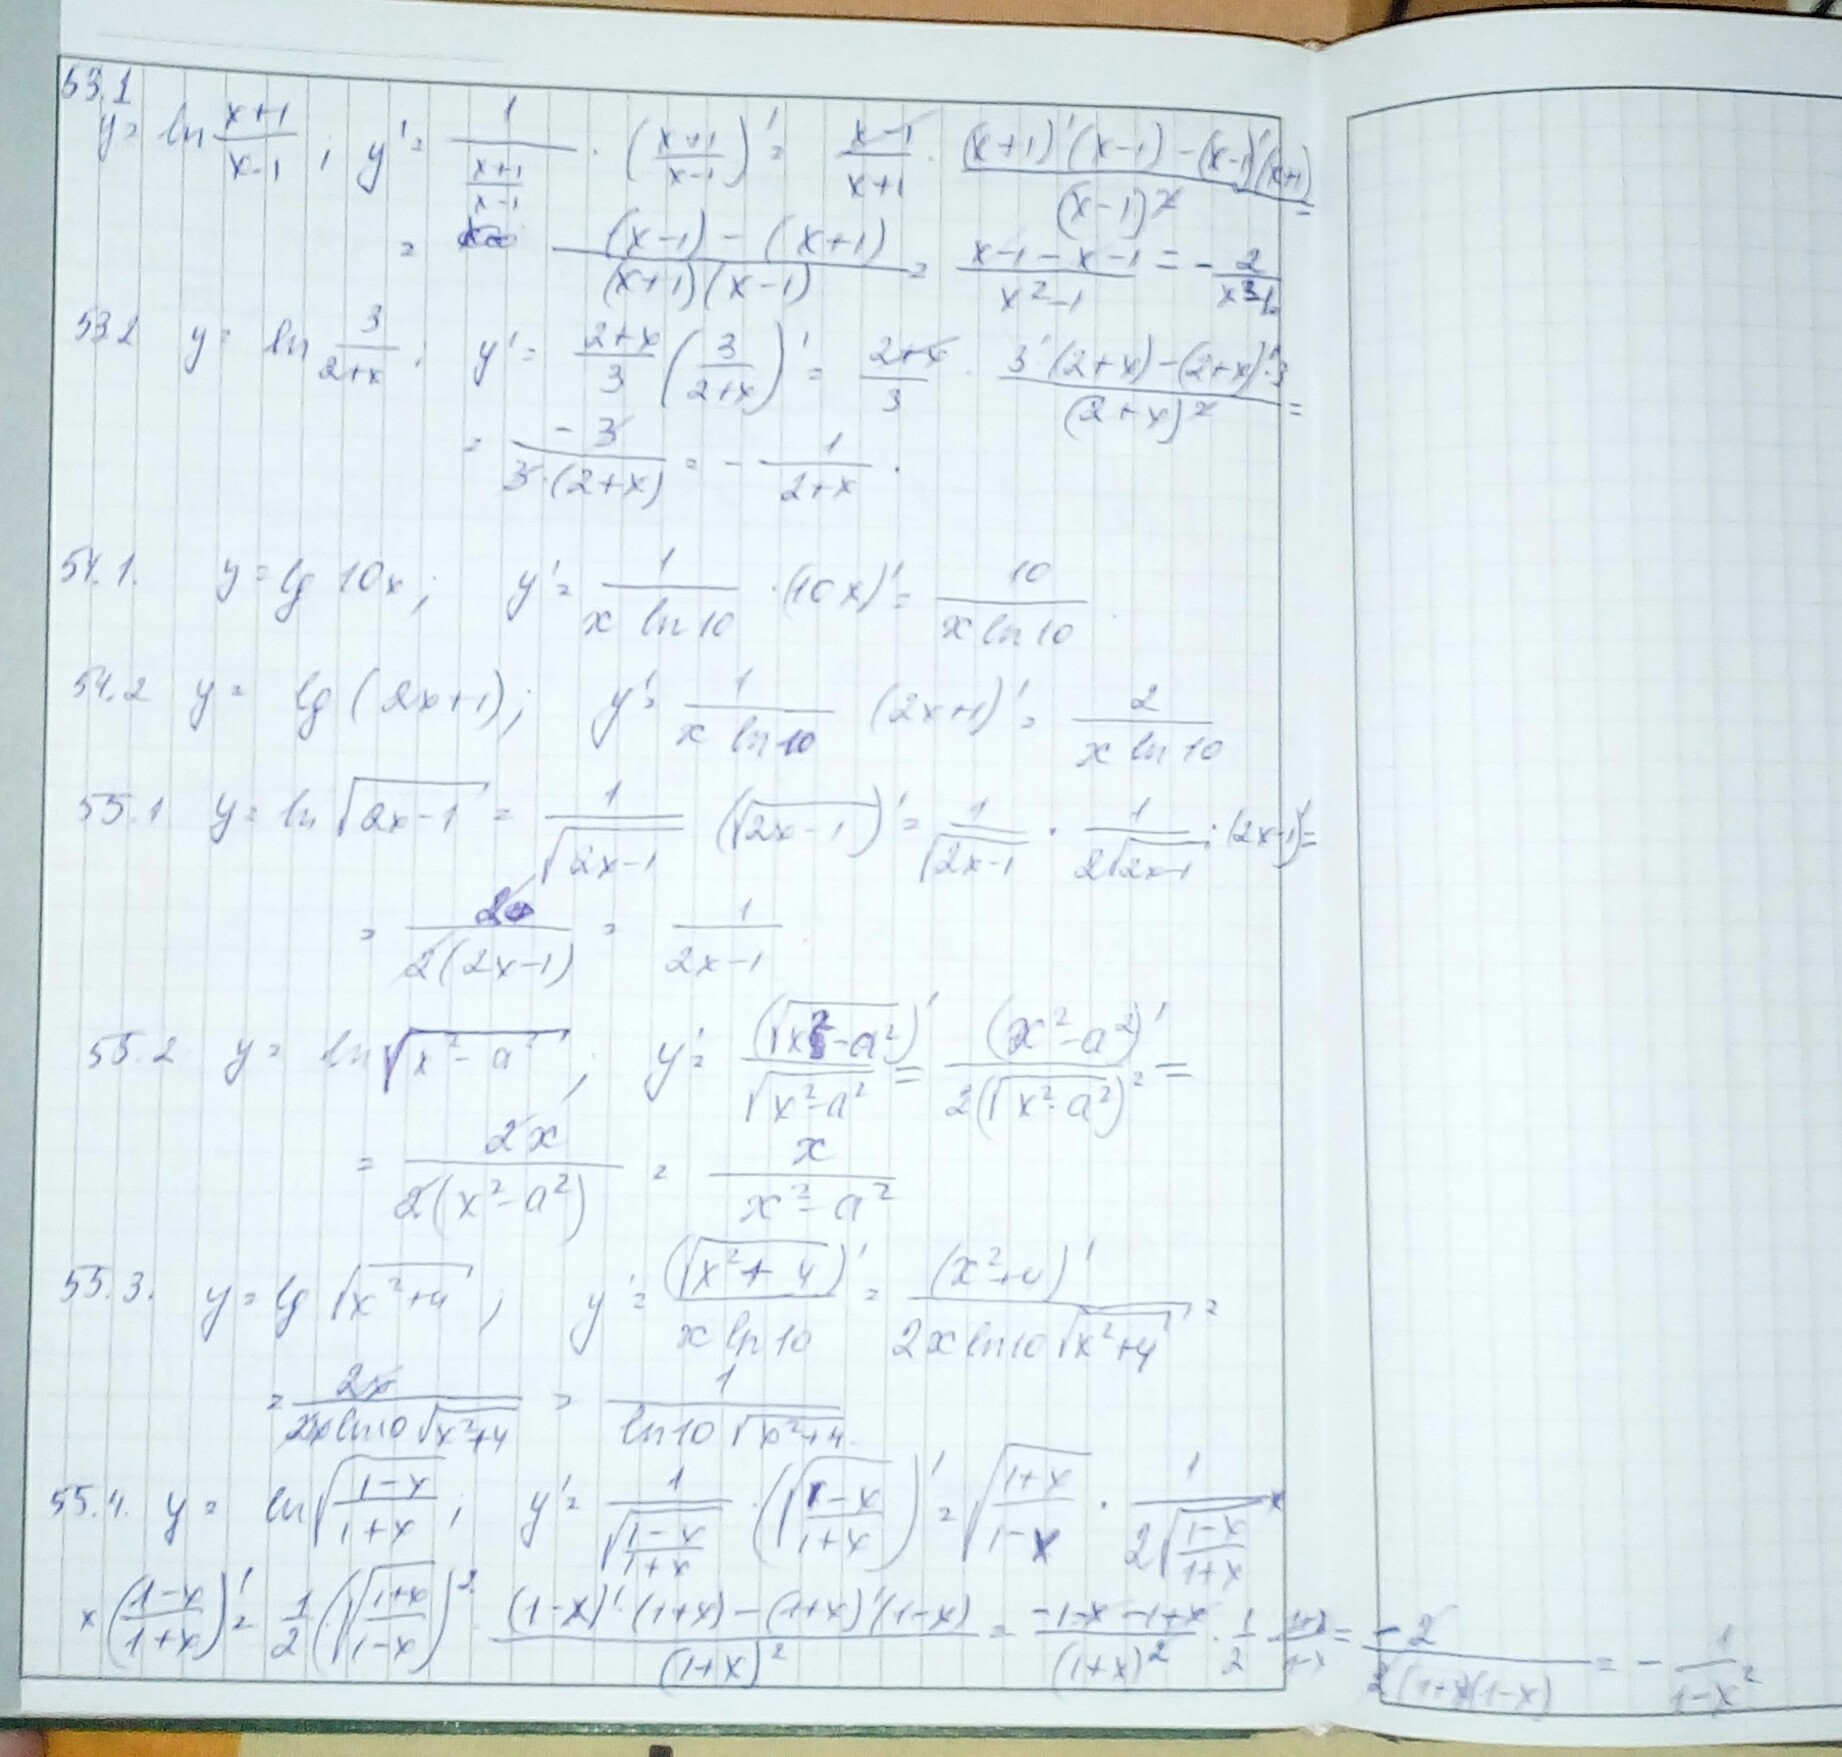 53.1
y = ln (x+1)/(x-1) ; y' = 1/((x+1)/(x-1)) · ((x+1)/(x-1))' = (x-1)/(x+1) · ((x+1)'(x-1) - (x-1)'(x+1))/(x-1)² =
= ((x-1) - (x+1))/((x+1)(x-1)) = (x-1-x-1)/(x²-1) = - 2/(x²-1)
53.2 y = ln 3/(2+x) ; y' = (2+x)/3 (3/(2+x))' = (2+x)/3 · (3'(2+x) - (2+x)'·3)/(2+x)² =
= -3/(3·(2+x)) = - 1/(2+x) .
54.1. y = lg 10x ; y' = 1/(x ln 10) · (10x)' = 10/(x ln 10) .
54.2 y = lg (2x+1) ; y' = 1/(x ln 10) (2x+1)' = 2/(x ln 10)
55.1 y = ln √(2x-1) = 1/√(2x-1) (√(2x-1))' = 1/√(2x-1) · 1/(2√(2x-1)) · (2x-1)' =
= 2/(2(2x-1)) = 1/(2x-1) .
55.2 y = ln √(x²-a²) ; y' = (√(x²-a²))'/√(x²-a²) = (x²-a²)'/(2(√(x²-a²))²) =
= 2x/(2(x²-a²)) = x/(x²-a²)
55.3. y = lg √(x²+4) ; y' = (√(x²+4))'/(x ln 10) = (x²+4)'/(2x ln 10 √(x²+4)) =
= 2x/(2x ln 10 √(x²+4)) = 1/(ln 10 √(x²+4)) .
55.4. y = ln √((1-x)/(1+x)) ; y' = 1/√((1-x)/(1+x)) · (√((1-x)/(1+x)))' = √((1+x)/(1-x)) · 1/(2√((1-x)/(1+x))) ×
× ((1-x)/(1+x))' = 1/2 (√((1+x)/(1-x)))² · ((1-x)'·(1+x) - (1+x)'(1-x))/(1+x)² = (-1-x-1+x)/(1+x)² · 1/2 · (1+x)/(1-x) = -2/(2(1+x)(1-x)) = - 1/(1-x²)